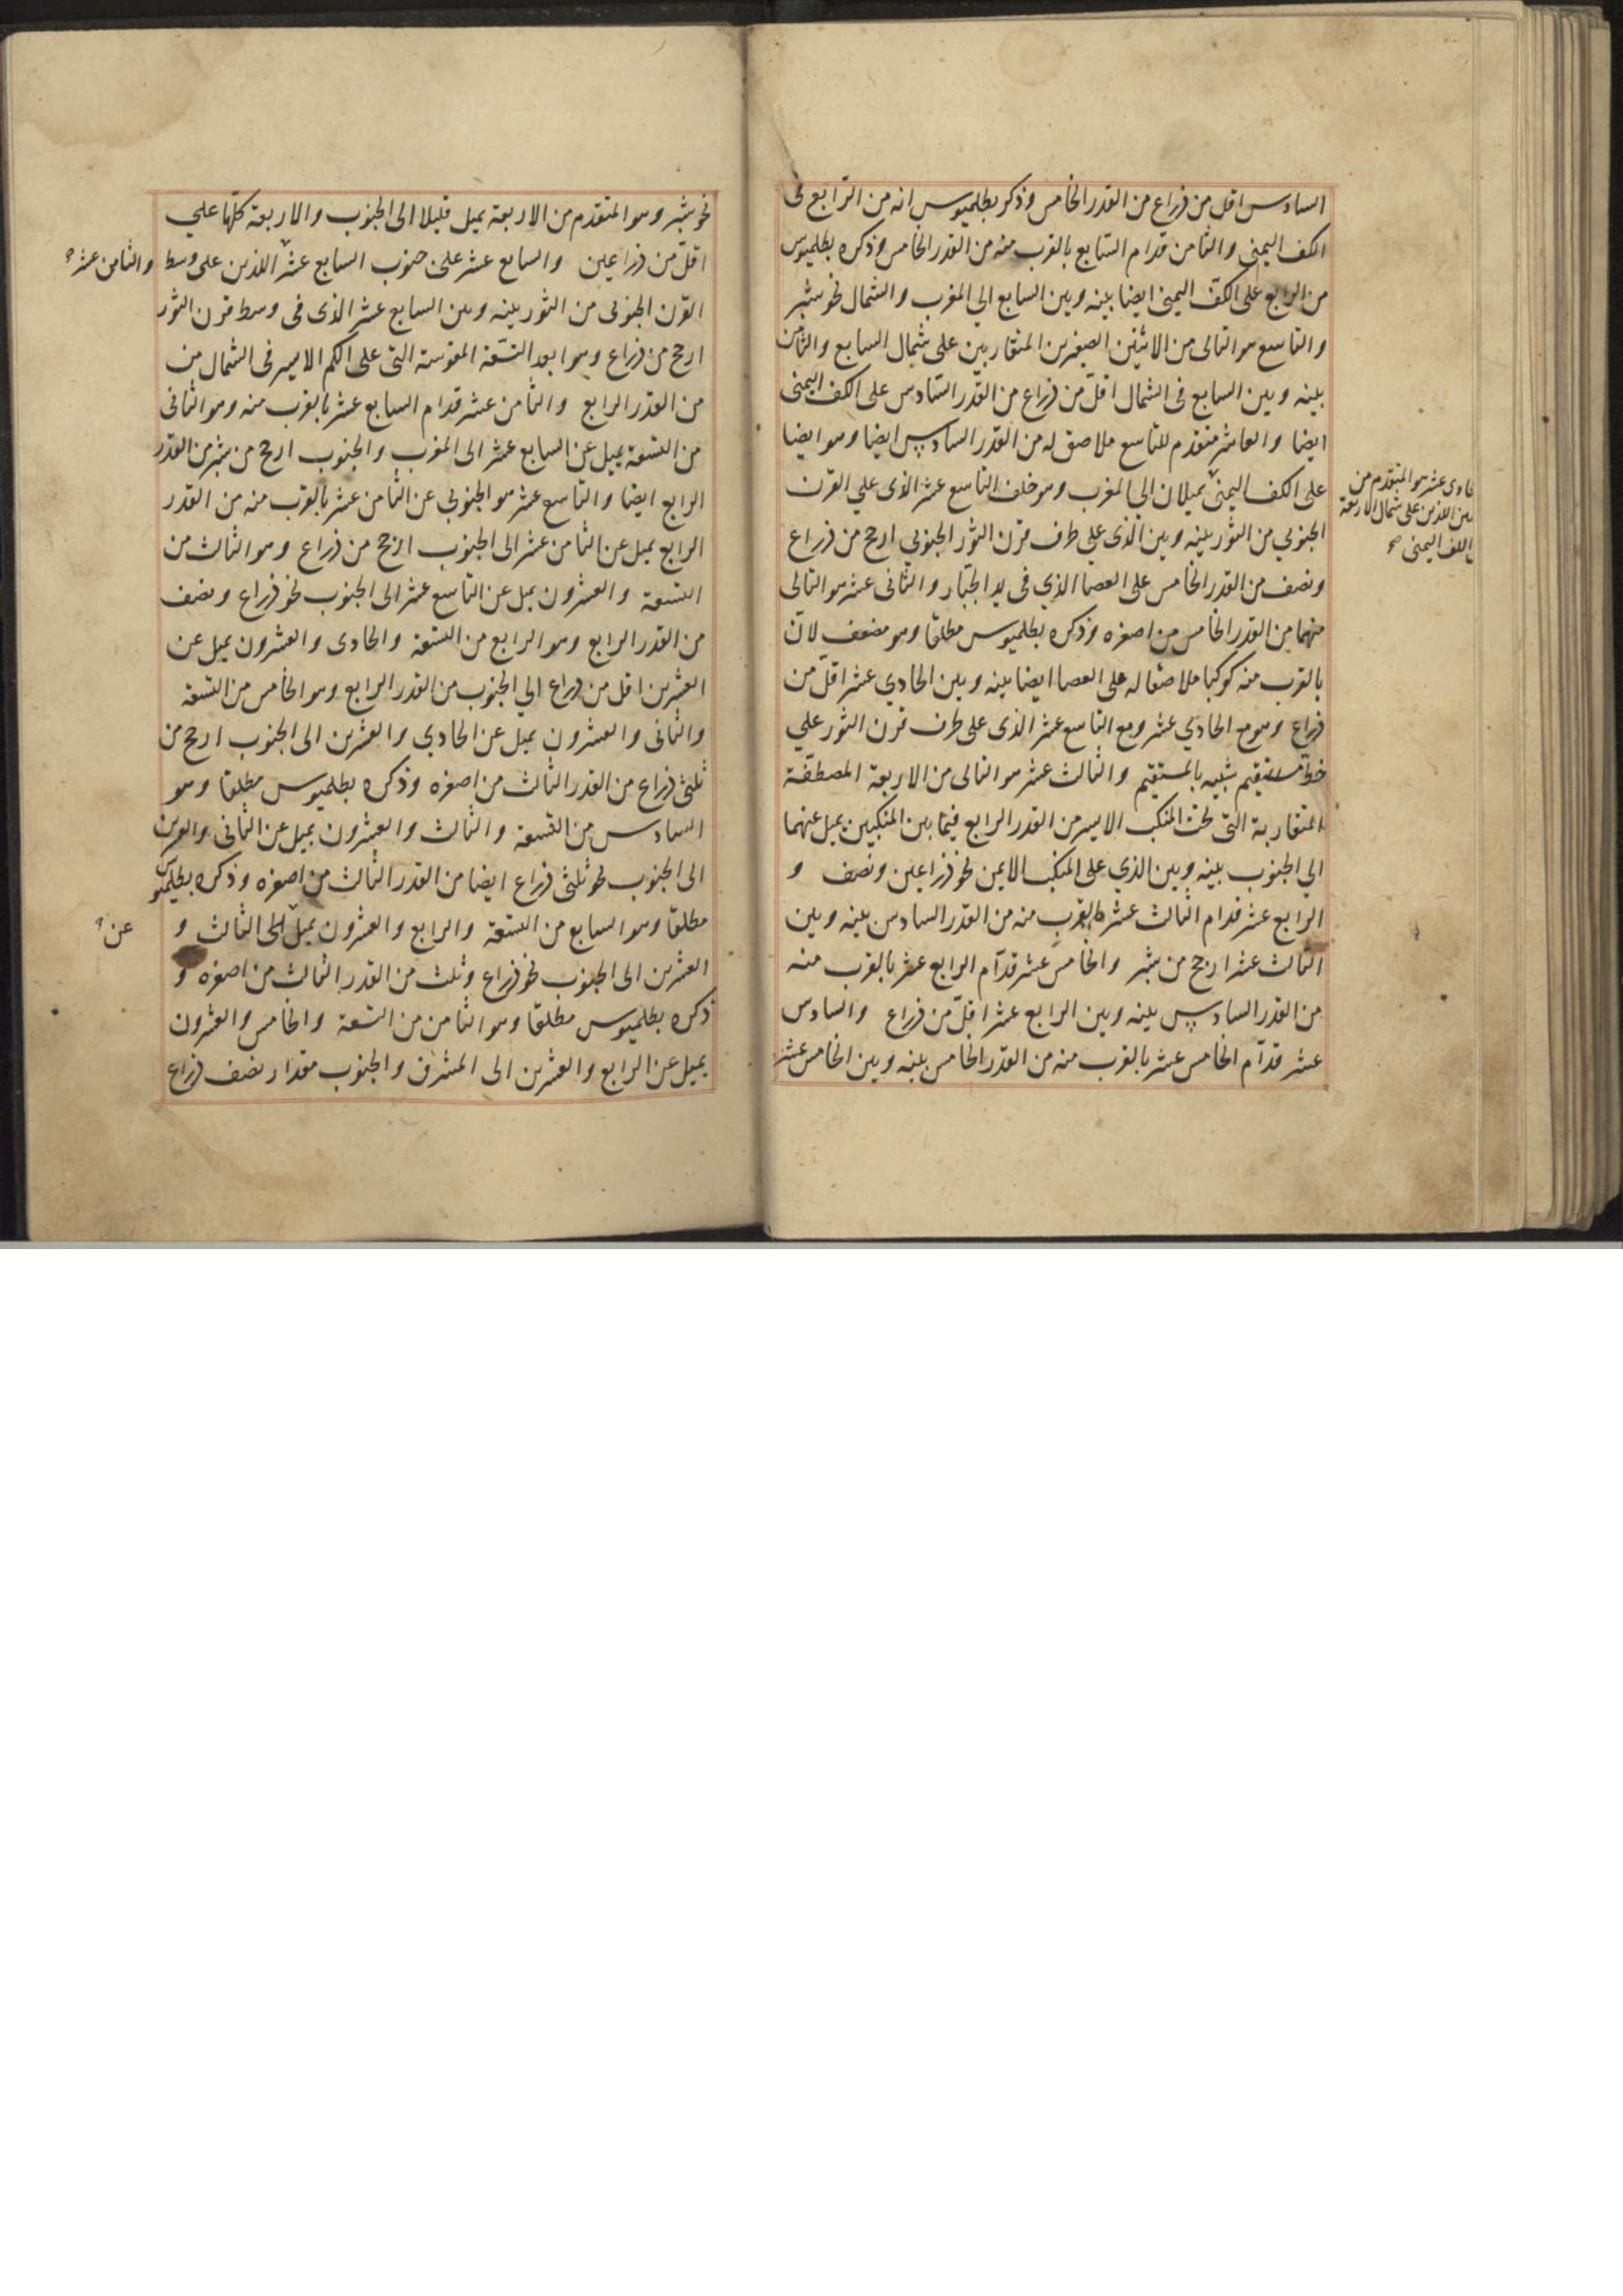 السادس اقل من ذراع من القدر الخامس وذكر بطلميوس انه من الرابع على
الكف اليمنى والثامن قدام السابع بالقرب منه من القدر الخامس وذكره بطلميوس
من الرابع على الكف اليمنى ايضا بينه وبين السابع الي المغرب والشمال نحو شبر
والتاسع هو التالى من الاثنين الصغيرين المتقاربين على شمال السابع والثامن
بينه وبين السابع فى الشمال اقل من ذراع من القدر السادس على الكف اليمنى
ايضا والعاشر متقدم للتاسع ملاصق له من القدر السادس ايضا وهو ايضا
على الكف اليمنى يميلان الى المغرب وهو خلف التاسع عشر الذى علي القرن
الجنوبي من الثور بينه وبين الذي علي طرف قرن الثور الجنوبي ارجح من ذراع
ونصف من القدر الخامس على العصا الذي فى يد الجبار والثانى عشر هو التالى
منهما من القدر الخامس من اصغره وذكره بطلميوس مطلقا وهو مضعف لان
بالقرب منه كوكبا ملاصقا له على العصا ايضا بينه وبين الحادي عشر اقل من
ذراع وهو مع الحادي عشر ومع التاسع عشر الذى على طرف قرن الثور علي
خط مستقيم شبيه بالمستقيم والثالث عشر هو التالى من الاربعة المصطفة
المتقاربة التى تحت المنكب الايسر من القدر الرابع فيما بين المنكبين يميل عنهما
الي الجنوب بينه وبين الذي على المنكب الايمن نحو ذراعين ونصف و
الرابع عشر قدام الثالث عشر بالقرب منه من القدر السادس بينه وبين
الثالث عشر ارجح من شبر والخامس عشر قدام الرابع عشر بالقرب منه
من القدر السادس بينه وبين الرابع عشر اقل من ذراع والسادس
عشر قدام الخامس عشر بالقرب منه من القدر الخامس بينه وبين الخامس عشر
حادى عشر هو المتقدم من
اللذين على شمال الاربعة
الكف اليمنى صح
نحو شبر وهو المتقدم من الاربعة يميل قليلا الى الجنوب والاربعة كلها علي
اقل من ذراعين والسابع عشر على جنوب السابع عشر اللذين على وسط
والثامن عشر
القرن الجنوبى من الثور بينه وبين السابع عشر الذى فى وسط قرن الثور
ارجح من ذراع وهو ابعد التسعة المقوسة التى على الكم الايسر فى الشمال من
من القدر الرابع والثامن عشر قدام السابع عشر بالقرب منه وهو الثانى
من التسعة يميل عن السابع عشر الى المغرب والجنوب ارجح من شبر من القدر
الرابع ايضا والتاسع عشر هو الجنوبي عن الثامن عشر بالقرب منه من القدر
الرابع يميل عن الثامن عشر الى الجنوب ارجح من ذراع وهو الثالث من
التسعة والعشرون يميل عن التاسع عشر الى الجنوب نحو ذراع ونصف
من القدر الرابع وهو الرابع من التسعة والحادى والعشرون يميل عن
العشرين اقل من ذراع الي الجنوب من القدر الرابع وهو الخامس من التسعة
والثانى والعشرون يميل عن الحادي والعشرين الى الجنوب ارجح من
ثلثى ذراع من القدر الثالث من اصغره وذكره بطلميوس مطلقا وهو
السادس من التسعة والثالث والعشرون يميل عن الثانى والعشرين
الى الجنوب نحو ثلثى ذراع ايضا من القدر الثالث من اصغره وذكره بطلميوس
مطلقا وهو السابع من التسعة والرابع والعشرون يميل الى الثالث و
عن
العشرين الى الجنوب نحو ذراع وثلث من القدر الثالث من اصغره و
ذكره بطلميوس مطلقا وهو الثامن من التسعة والخامس والعشرون
يميل عن الرابع والعشرين الى المشرق والجنوب مقدار نصف ذراع